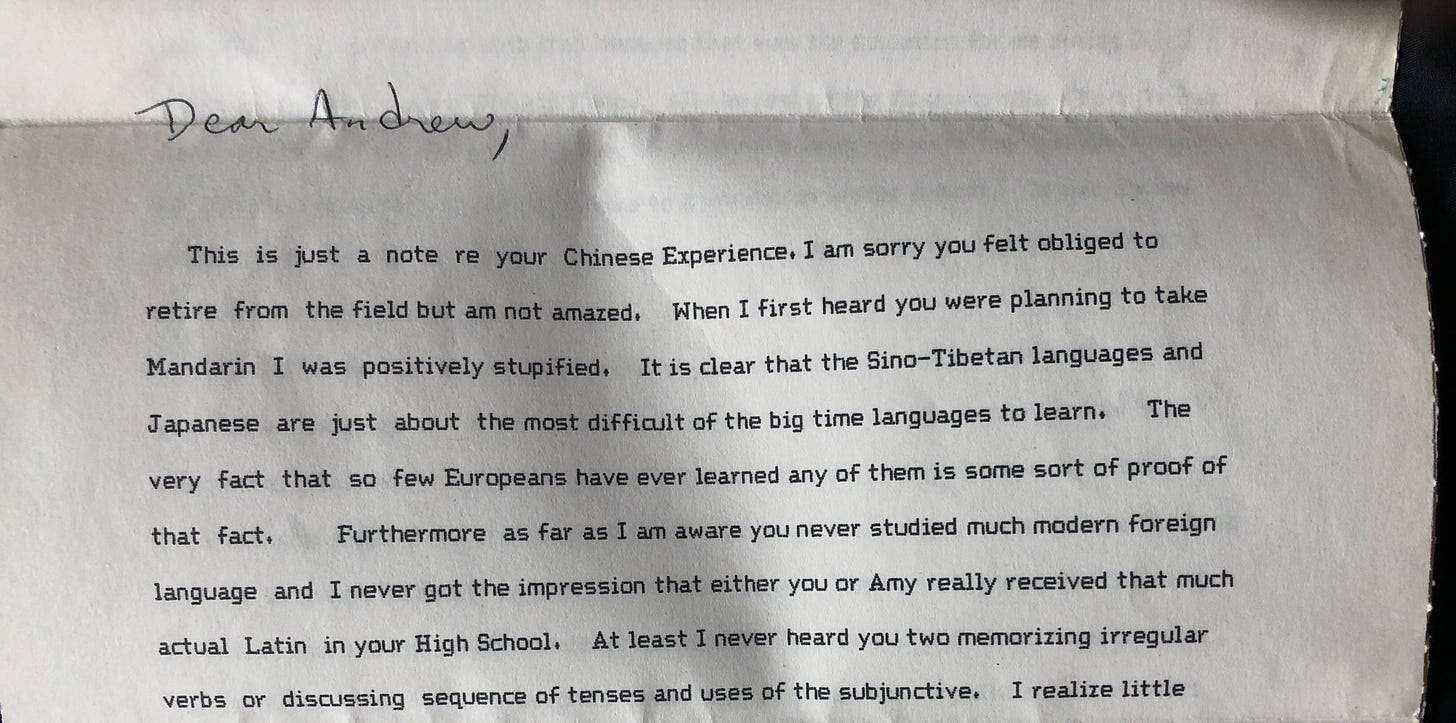 Dear Andrew,
This is just a note re your Chinese Experience. I am sorry you felt obliged to
retire from the field but am not amazed. When I first heard you were planning to take
Mandarin I was positively stupified. It is clear that the Sino-Tibetan languages and
Japanese are just about the most difficult of the big time languages to learn. The
very fact that so few Europeans have ever learned any of them is some sort of proof of
that fact. Furthermore as far as I am aware you never studied much modern foreign
language and I never got the impression that either you or Amy really received that much
actual Latin in your High School. At least I never heard you two memorizing irregular
verbs or discussing sequence of tenses and uses of the subjunctive. I realize little